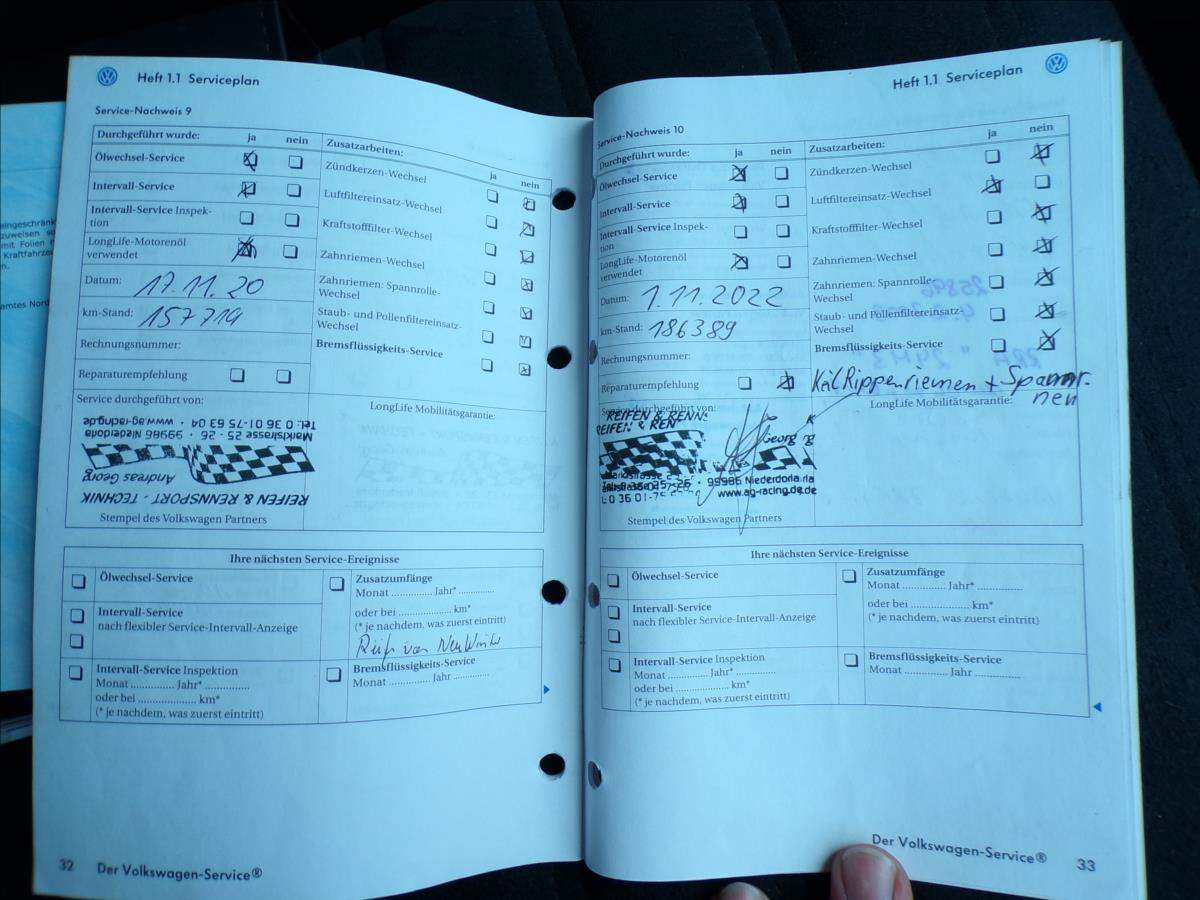 eingeschränk
zuweisen so
mit Folien
Kraftfahrze
amtes Nord
Heft 1.1 Serviceplan
Service-Nachweis 9
Durchgeführt wurde: ja nein
Zusatzarbeiten: ja nein
Ölwechsel-Service
Zündkerzen-Wechsel
Intervall-Service
Luftfiltereinsatz-Wechsel
Intervall-Service Inspek-
tion
Kraftstofffilter-Wechsel
LongLife-Motorenöl
verwendet
Zahnriemen-Wechsel
Datum: 17.11.20
Zahnriemen: Spannrolle-
Wechsel
km-Stand: 157719
Staub- und Pollenfiltereinsatz-
Wechsel
Rechnungsnummer:
Bremsflüssigkeits-Service
Reparaturempfehlung
Service durchgeführt von:
LongLife Mobilitätsgarantie:
REIFEN & RENNSPORT - TECHNIK
Andreas Georg
Marktstrasse 25 - 26 · 99986 Niederdorla
Tel.: 0 36 01-75 63 04 · www.ag-racing.de
Stempel des Volkswagen Partners
Ihre nächsten Service-Ereignisse
Ölwechsel-Service
Zusatzumfänge
Monat .............. Jahr* ..............
Intervall-Service
nach flexibler Service-Intervall-Anzeige
oder bei ...................... km*
(* je nachdem, was zuerst eintritt)
Intervall-Service Inspektion
Monat .............. Jahr* ..............
oder bei ...................... km*
(* je nachdem, was zuerst eintritt)
Bremsflüssigkeits-Service
Monat .............. Jahr ..............
32 Der Volkswagen-Service®
Heft 1.1 Serviceplan
Service-Nachweis 10
Durchgeführt wurde: ja nein
Zusatzarbeiten: ja nein
Ölwechsel-Service
Zündkerzen-Wechsel
Intervall-Service
Luftfiltereinsatz-Wechsel
Intervall-Service Inspek-
tion
Kraftstofffilter-Wechsel
LongLife-Motorenöl
verwendet
Zahnriemen-Wechsel
Datum: 1.11.2022
Zahnriemen: Spannrolle-
Wechsel
km-Stand: 186389
Staub- und Pollenfiltereinsatz-
Wechsel
Rechnungsnummer:
Bremsflüssigkeits-Service
Reparaturempfehlung
Rippenriemen + Spannr.
neu
Service durchgeführt von:
LongLife Mobilitätsgarantie:
REIFEN & RENN
REIFEN & REN
Georg
25 - 26 · 99986 Niederdorla
0 36 01-75 www.ag-racing.de
Stempel des Volkswagen Partners
Ihre nächsten Service-Ereignisse
Ölwechsel-Service
Zusatzumfänge
Monat .............. Jahr* ..............
Intervall-Service
nach flexibler Service-Intervall-Anzeige
oder bei ...................... km*
(* je nachdem, was zuerst eintritt)
Intervall-Service Inspektion
Monat .............. Jahr* ..............
oder bei ...................... km*
(* je nachdem, was zuerst eintritt)
Bremsflüssigkeits-Service
Monat .............. Jahr ..............
Der Volkswagen-Service® 33